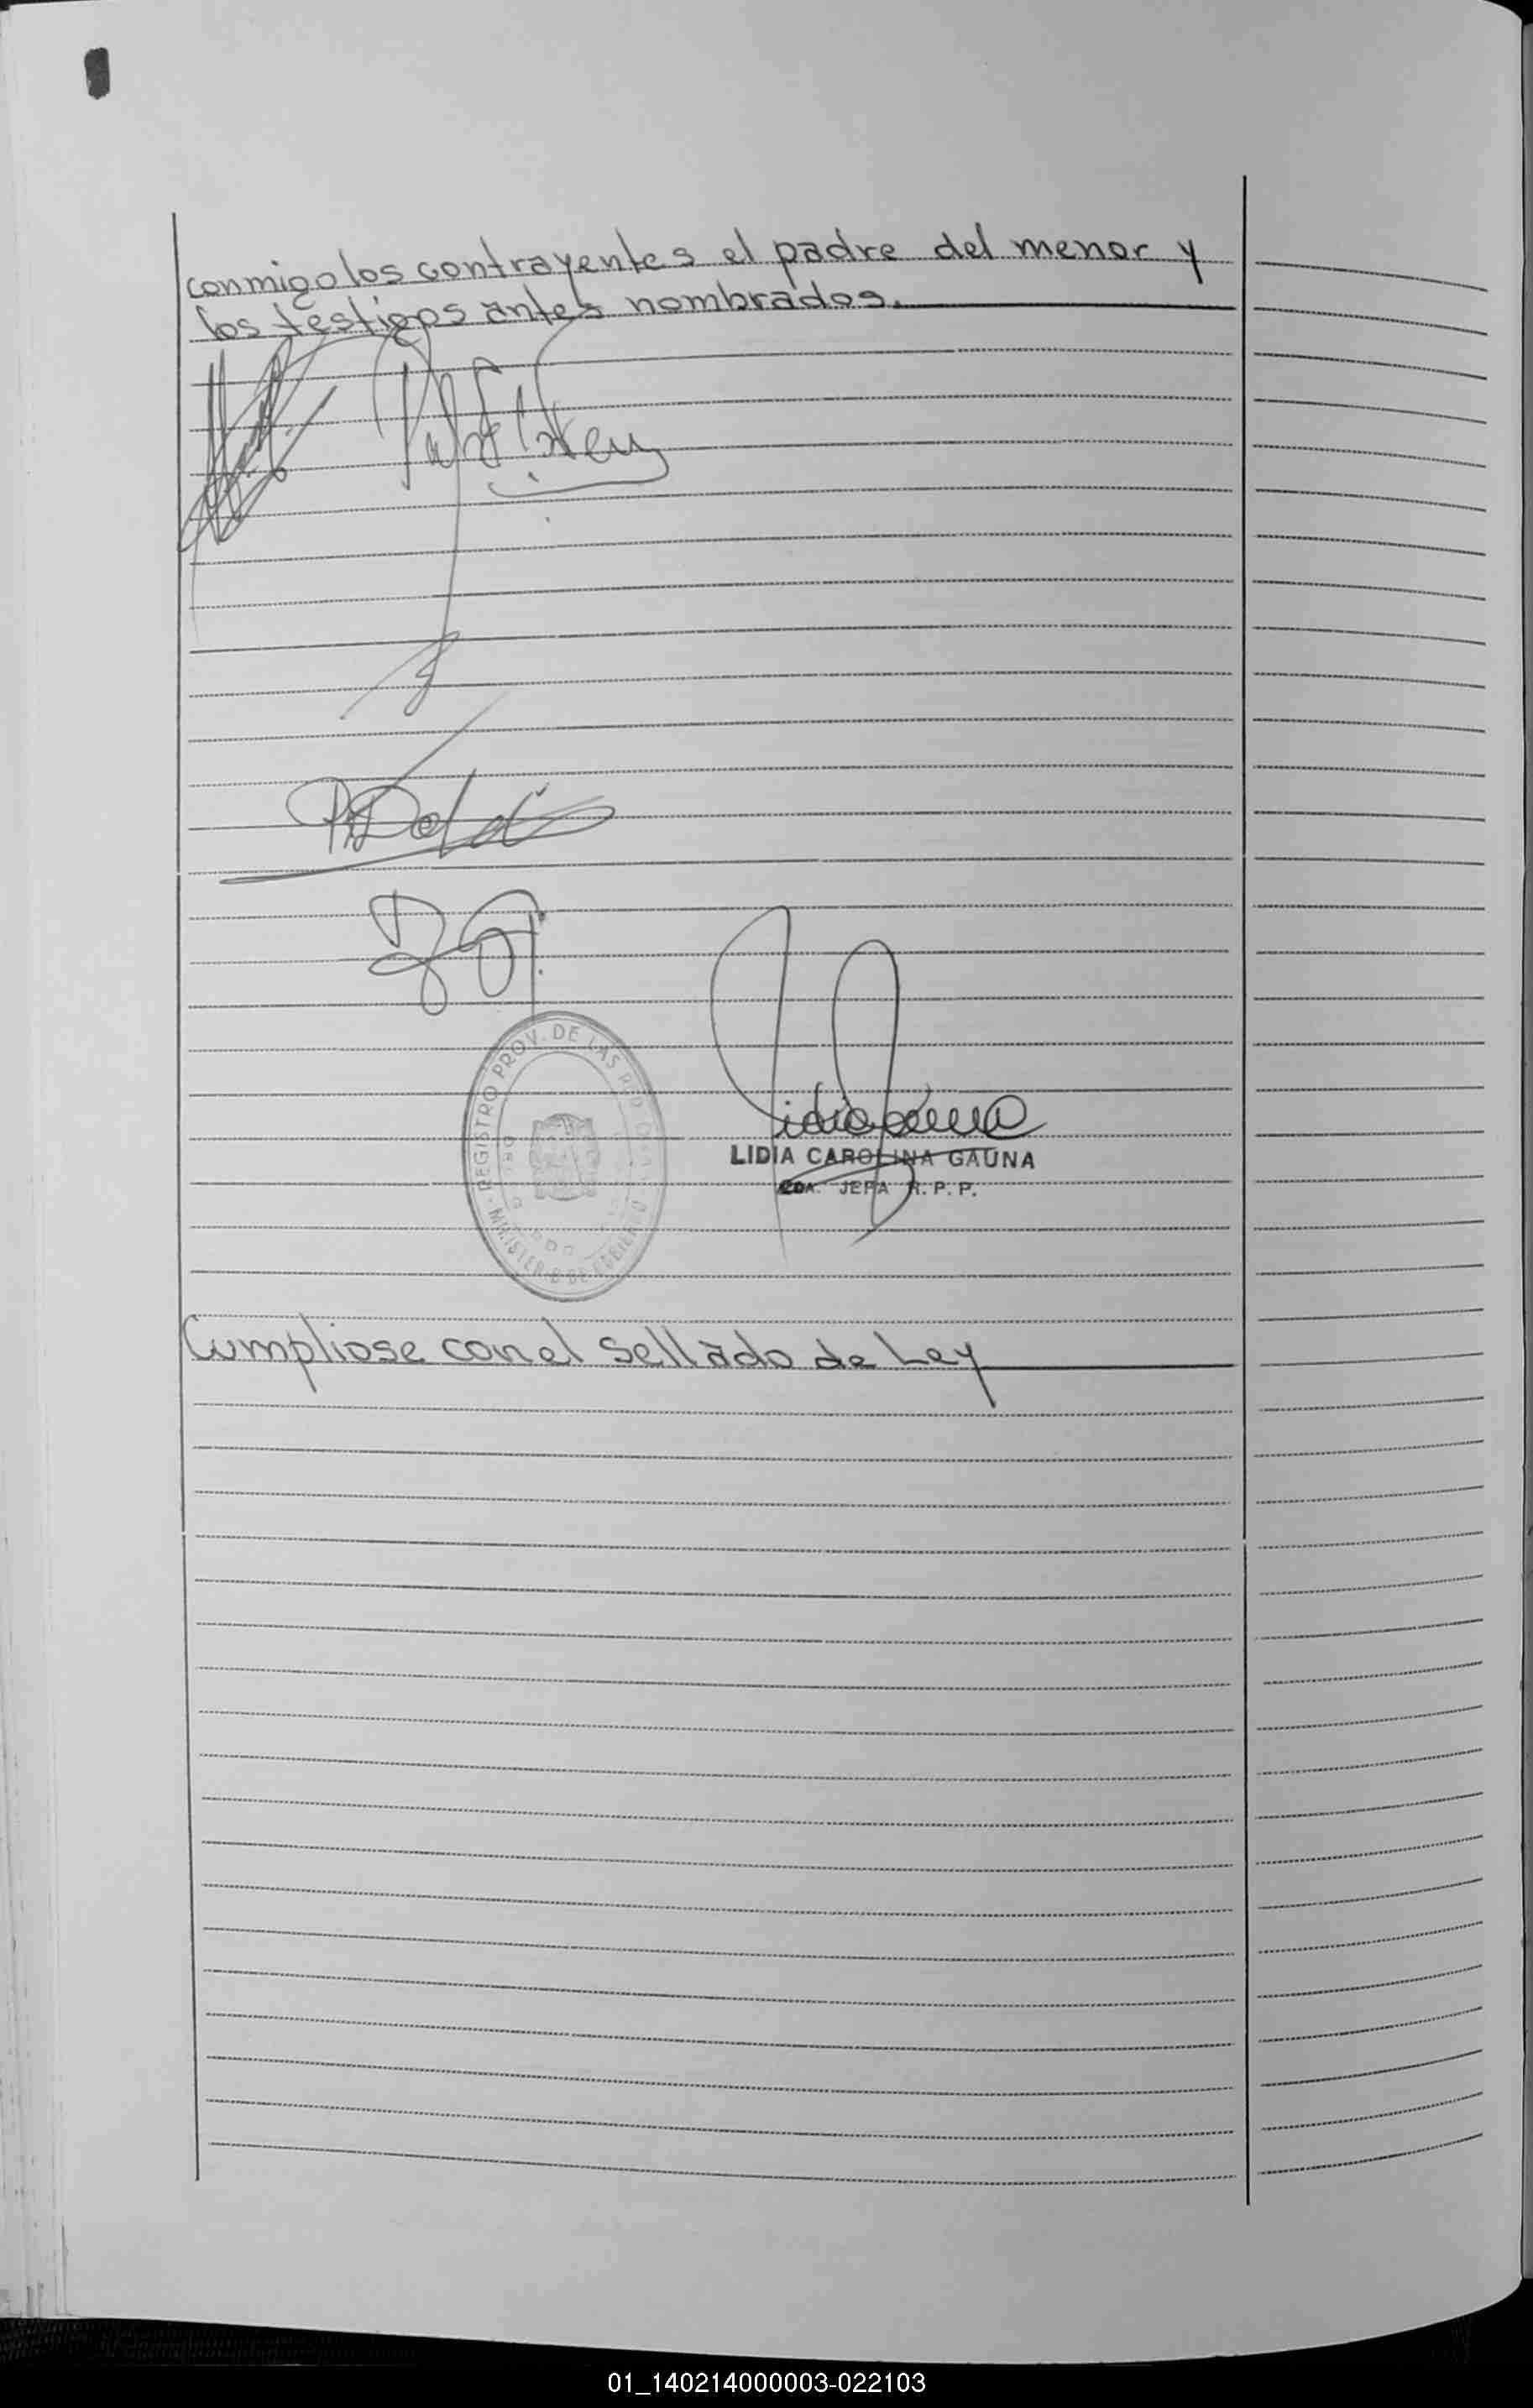 conmigo los contrayentes el padre del menor y
los testigos antes nombrados.
REGISTRO PROV. DE LAS
MINISTERIO DE GOBIERNO
LIDIA CAROLINA GAUNA
JEFA R. P. P.
Cumpliose con el sellado de Ley
01_140214000003-022103